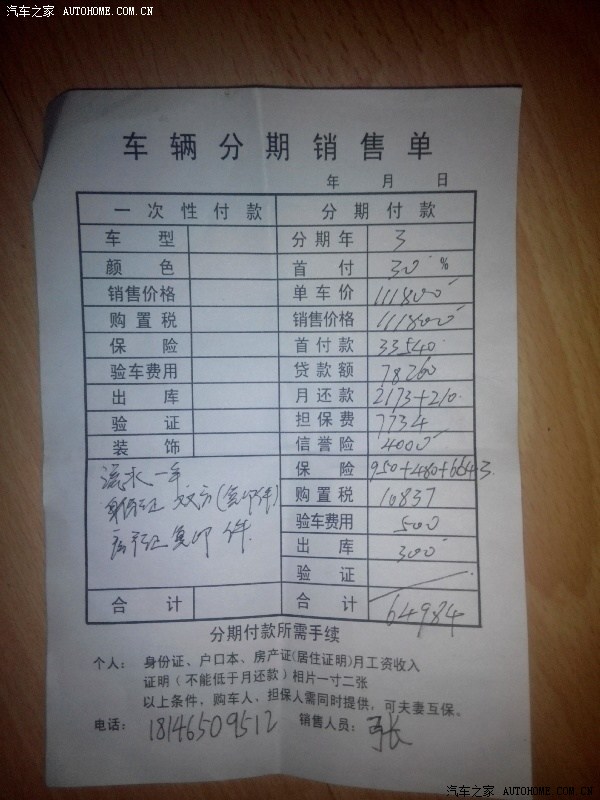 汽车之家 AUTOHOME.COM.CN
车辆分期销售单
年 月 日
一次性付款 分期付款
车型 分期年 3
颜色 首付 30 %
销售价格 单车价 111800
购置税 销售价格 111800
保险 首付款 33540
验车费用 贷款额 78260
出库 月还款 2173+210
验证 担保费 7734
装饰 信誉险 4000
保险 950+480+6643
流水一年
购置税 10837
身份证 双方(复印件)
验车费用 500
房产证复印件
出库 300
验证
合计 合计 64984
分期付款所需手续
个人: 身份证、户口本、房产证(居住证明)月工资收入
证明(不能低于月还款)相片一寸二张
以上条件,购车人、担保人需同时提供,可夫妻互保、
电话: 18146509512 销售人员: 张
汽车之家 AUTOHOME.COM.CN